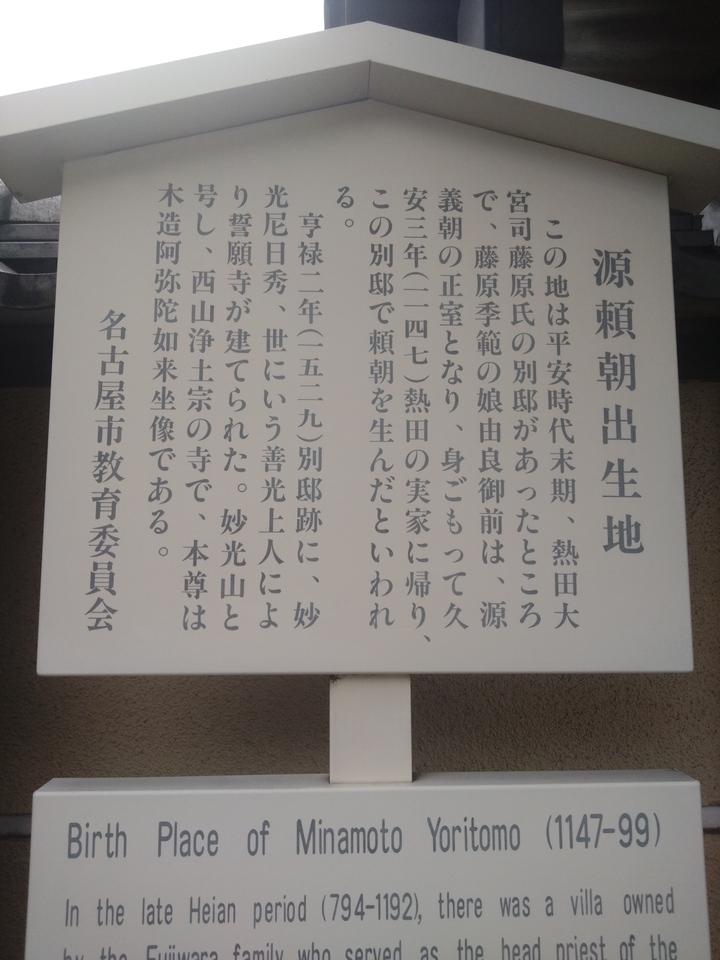 源頼朝出生地
この地は平安時代末期、熱田大
宮司藤原氏の別邸があったところ
で、藤原季範の娘由良御前は、源
義朝の正室となり、身ごもって久
安三年(一一四七)熱田の実家に帰り、
この別邸で頼朝を生んだといわれ
る。
亨禄二年(一五二九)別邸跡に、妙
光尼日秀、世にいう善光上人によ
り誓願寺が建てられた。妙光山と
号し、西山浄土宗の寺で、本尊は
木造阿弥陀如来坐像である。
名古屋市教育委員会
Birth Place of Minamoto Yoritomo (1147-99)
In the late Heian period (794-1192), there was a villa owned
by the Fujiwara family who served as the head priest of the